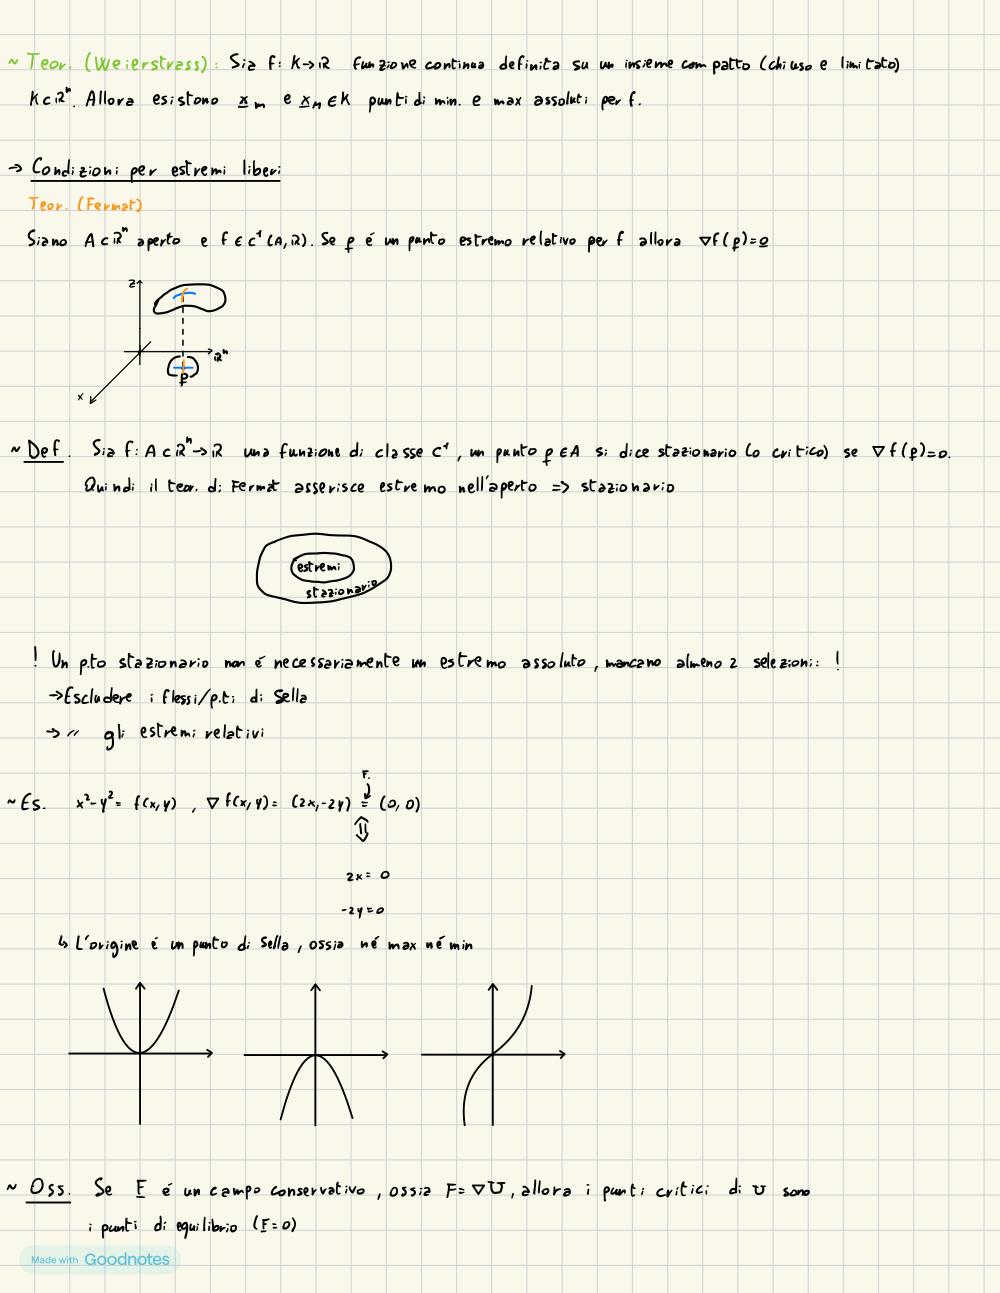 ~ Teor. (Weierstrass): Sia f: K→ℝ funzione continua definita su un insieme compatto (chiuso e limitato)
K⊂ℝⁿ. Allora esistono x̲ₘ e x̲_M ∈ K punti di min. e max assoluti per f.
→ Condizioni per estremi liberi
Teor. (Fermat)
Siano A⊂ℝⁿ aperto e f∈C¹(A,ℝ). Se p̲ é un punto estremo relativo per f allora ∇f(p̲)=0̲
z
ℝⁿ
p̲
x
~ Def. Sia f: A⊂ℝⁿ→ℝ una funzione di classe C¹, un punto p̲∈A si dice stazionario (o critico) se ∇f(p̲)=0.
Quindi il teor. di Fermat asserisce estremo nell'aperto => stazionario
estremi
stazionario
! Un p.to stazionario non é necessariamente un estremo assoluto, mancano almeno 2 selezioni: !
→Escludere i flessi/p.ti di Sella
→ " gli estremi relativi
F.
~Es. x²-y²= f(x,y) , ∇f(x,y)= (2x,-2y) = (0,0)
⇕
2x= 0
-2y=0
↳ L'origine é un punto di Sella, ossia né max né min
~ Oss. Se F̲ é un campo conservativo, ossia F=∇U, allora i punti critici di U sono
i punti di equilibrio (F̲=0)
Made with Goodnotes